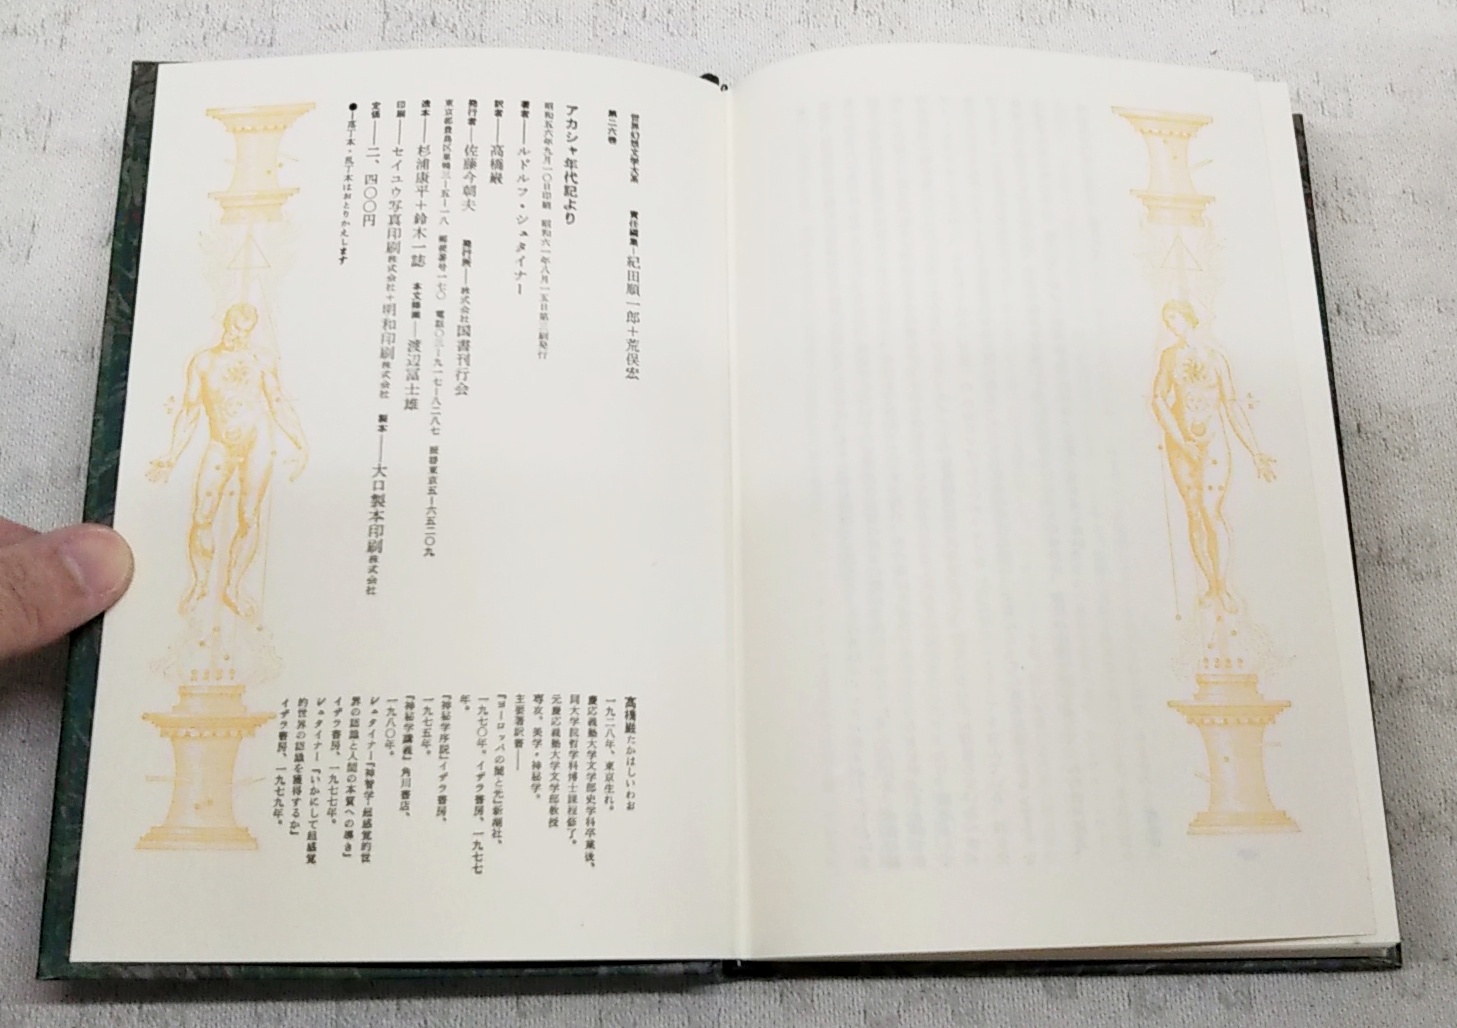 世界幻想文学大系　責任編集―紀田順一郎＋荒俣宏
第二六巻
アカシャ年代記より
昭和五六年九月一〇日印刷　昭和六一年八月一五日第三刷発行
著者――ルドルフ・シュタイナー
訳者――高橋巌
発行者――佐藤今朝夫　発行所――株式会社国書刊行会
東京都豊島区巣鴨三―五―一八　郵便番号一七〇　電話〇三―九一七―八二八七　振替東京五―六五二〇九
造本――杉浦康平＋鈴木一誌　本文挿画――渡辺冨士雄
印刷――セイユウ写真印刷株式会社＋明和印刷株式会社　製本――大口製本印刷株式会社
定価――二、四〇〇円
●―落丁本・乱丁本はおとりかえします
高橋巌たかはしいわお
一九二八年、東京生れ。
慶応義塾大学文学部史学科卒業後、
同大学院哲学科博士課程修了。
元慶応義塾大学文学部教授
専攻、美学・神秘学。
主要著訳書――
『ヨーロッパの闇と光』新潮社、
一九七〇年。イザラ書房、一九七七
年。
『神秘学序説』イザラ書房、
一九七五年。
『神秘学講義』角川書店、
一九八〇年。
シュタイナー『神智学―超感覚的世
界の認識と人間の本質への導き』
イザラ書房、一九七七年。
シュタイナー『いかにして超感覚
的世界の認識を獲得するか』
イザラ書房、一九七九年。